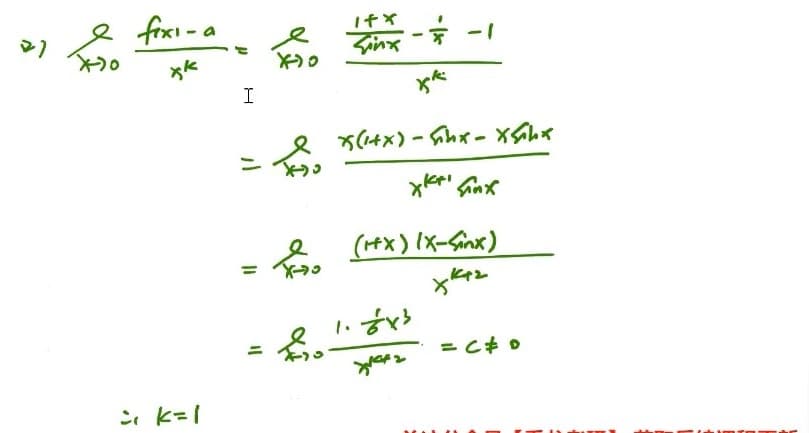 2) lim x→0 (f(x)-a)/x^k = lim x→0 ((1+x)/sinx - 1/x - 1)/x^k
= lim x→0 (x(1+x) - sinx - xsinx)/(x^(k+1) sinx)
= lim x→0 ((1+x)(x-sinx))/x^(k+2)
= lim x→0 (1·1/6 x^3)/x^(k+2) = c≠0
∴ k=1